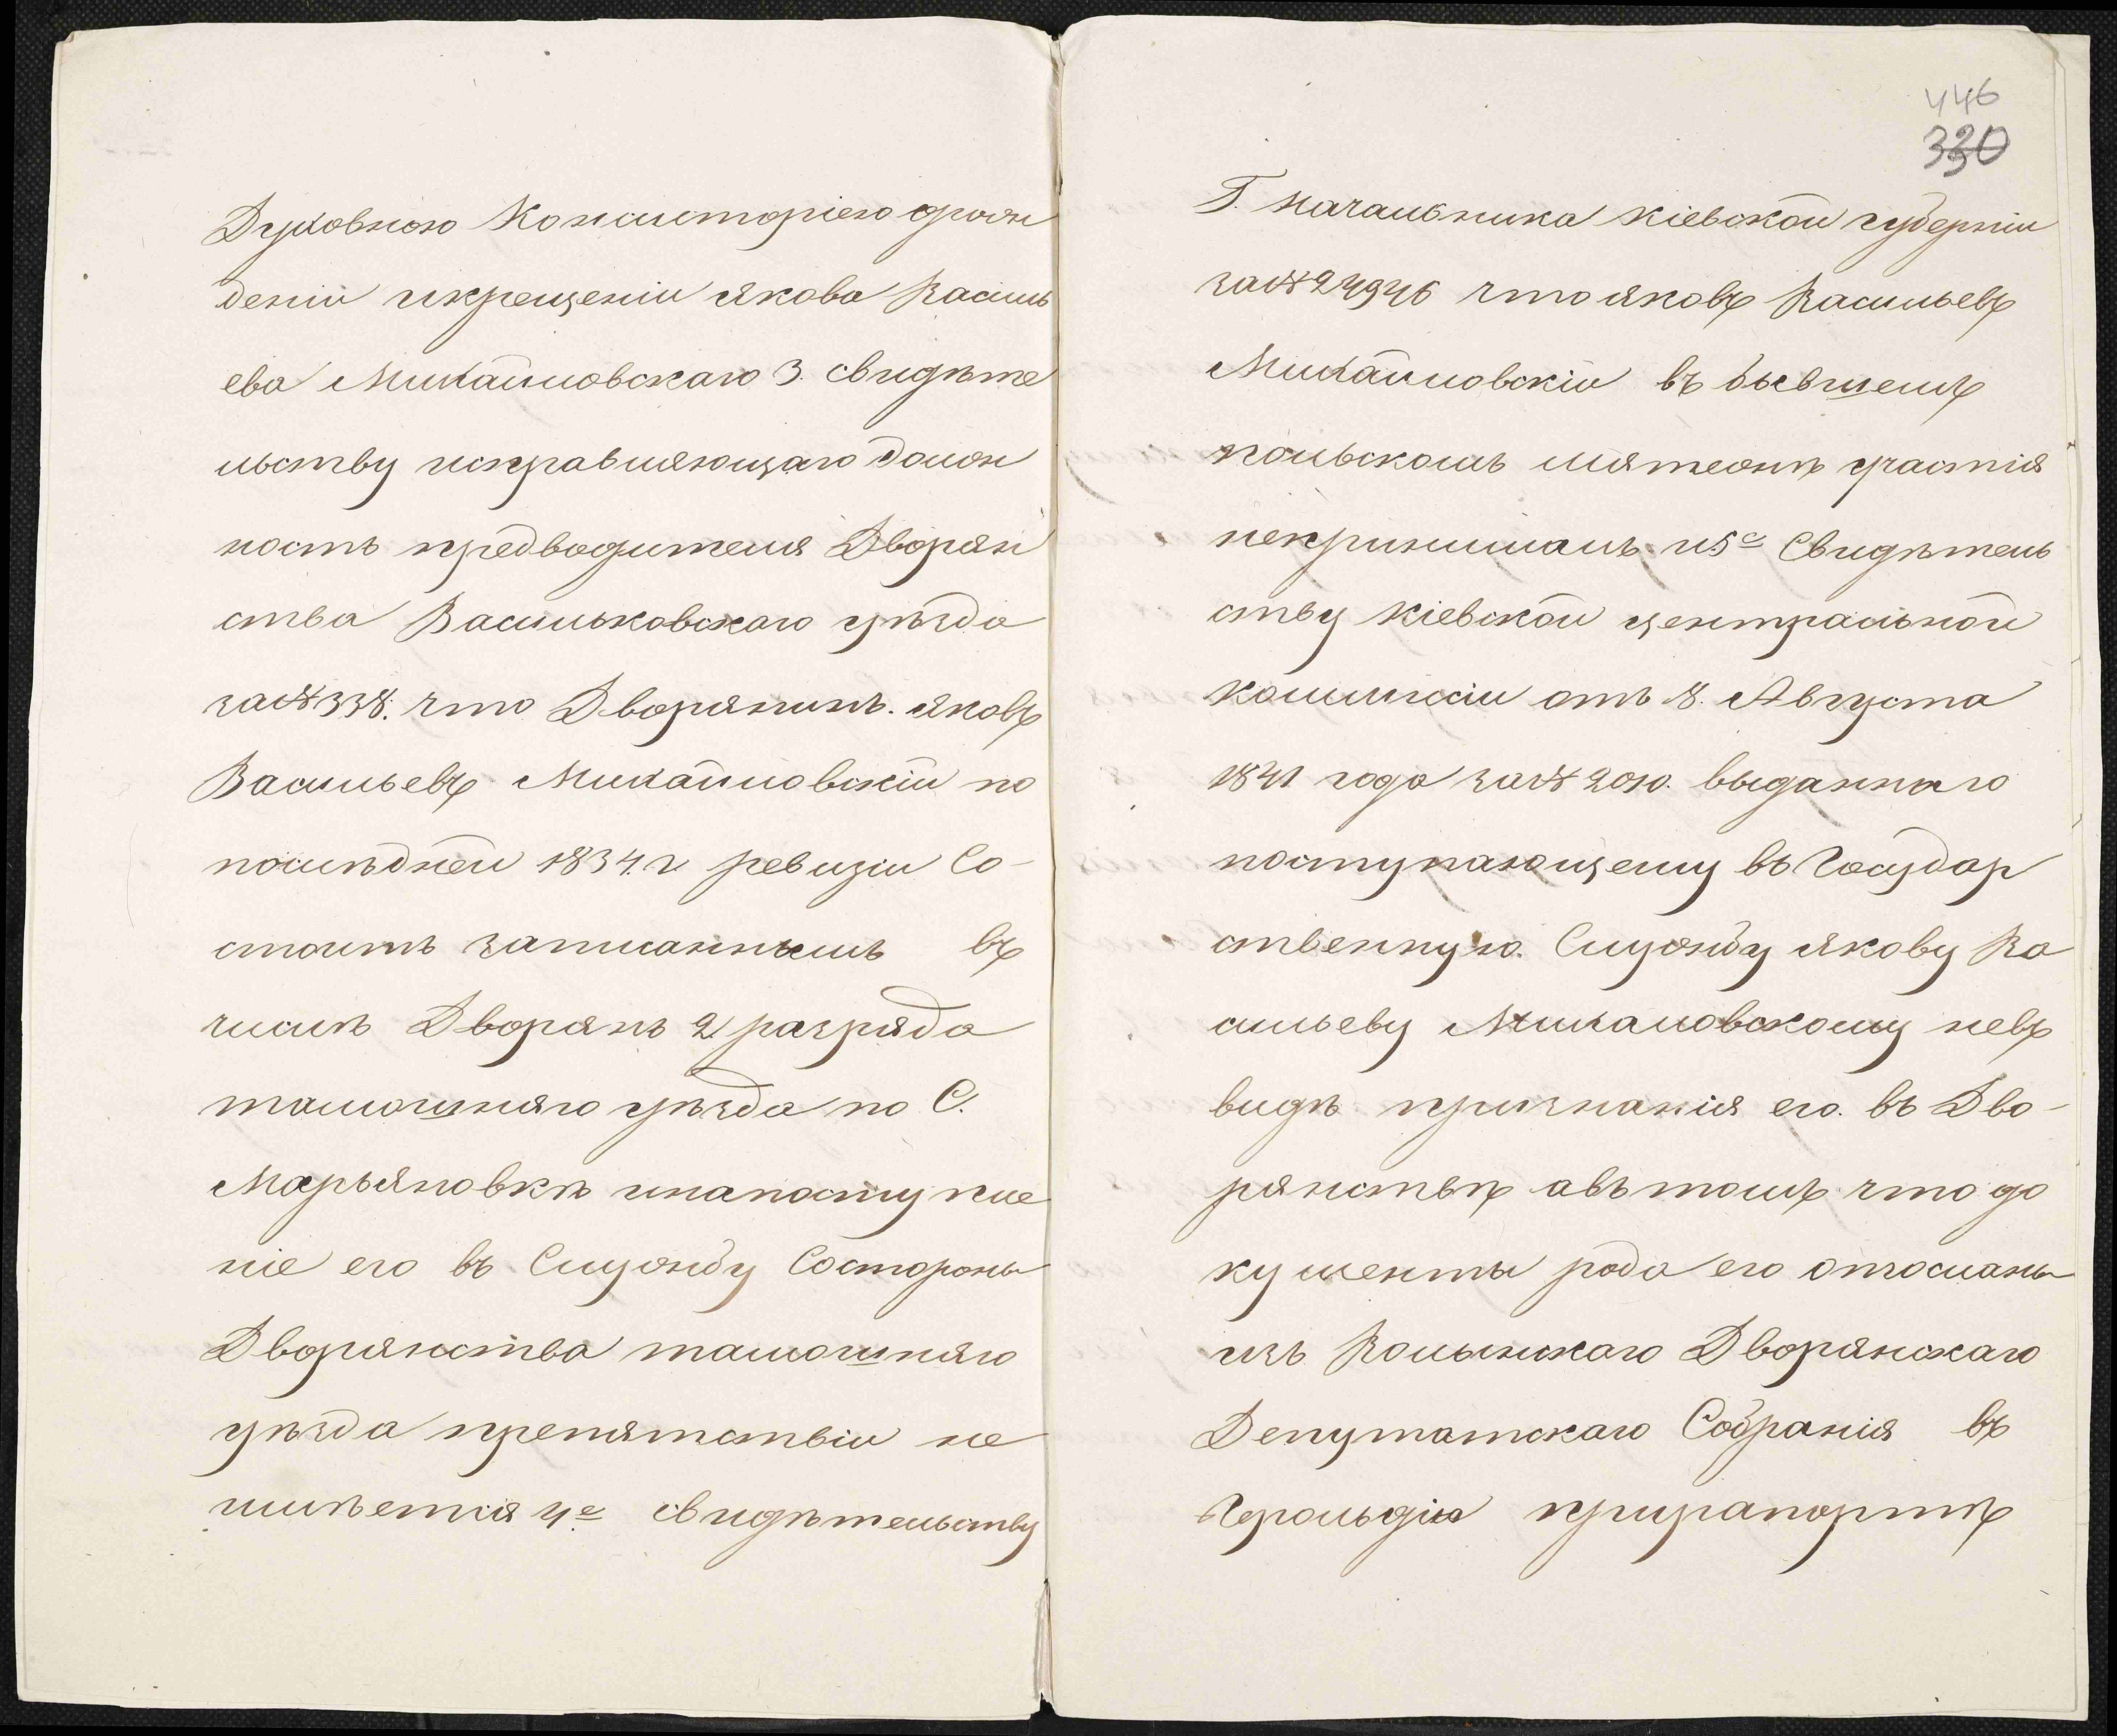 Духовною Консисторіею о рож
деніи и крещеніи Якова Василь
ева Михайловскаго 3. свидѣте
льству исправляющаго долж
ность предводителя Дворян
ства Васильковскаго уѣзда
за № 338. что Дворянинъ. Яковъ
Васильевъ Михайловскій по
послѣдней 1834. г. ревизіи Со-
стоитъ записаннымъ въ
числѣ Дворянъ 2 разряда
тамошняго уѣзда по С.
Марьяновкѣ и на поступле
ніе его въ Службу Состороны
Дворянства тамошняго
уѣзда препятствій не
имѣется 4е свидѣтельству
446
330
Г. Начальника Кіевской губерніи
за № 24946 что Яковъ Васильевъ
Михайловскій въ бывшемъ
польскомъ мятежѣ участія
непринималъ. и 5е Свидѣтель
ству Кіевской центральной
коммисіи отъ 8. Августа
1841 года за № 2010. выданнаго
поступающему въ Государ
ственную. Службу Якову Ва
сильеву Михаловскому невъ
видѣ признанія его. въ Дво-
рянствѣ авътомъ что до
кументы рода его отосланы
изъ Волынскаго Дворянскаго
Депутатскаго Собранія въ
Герольдію прирапортѣ